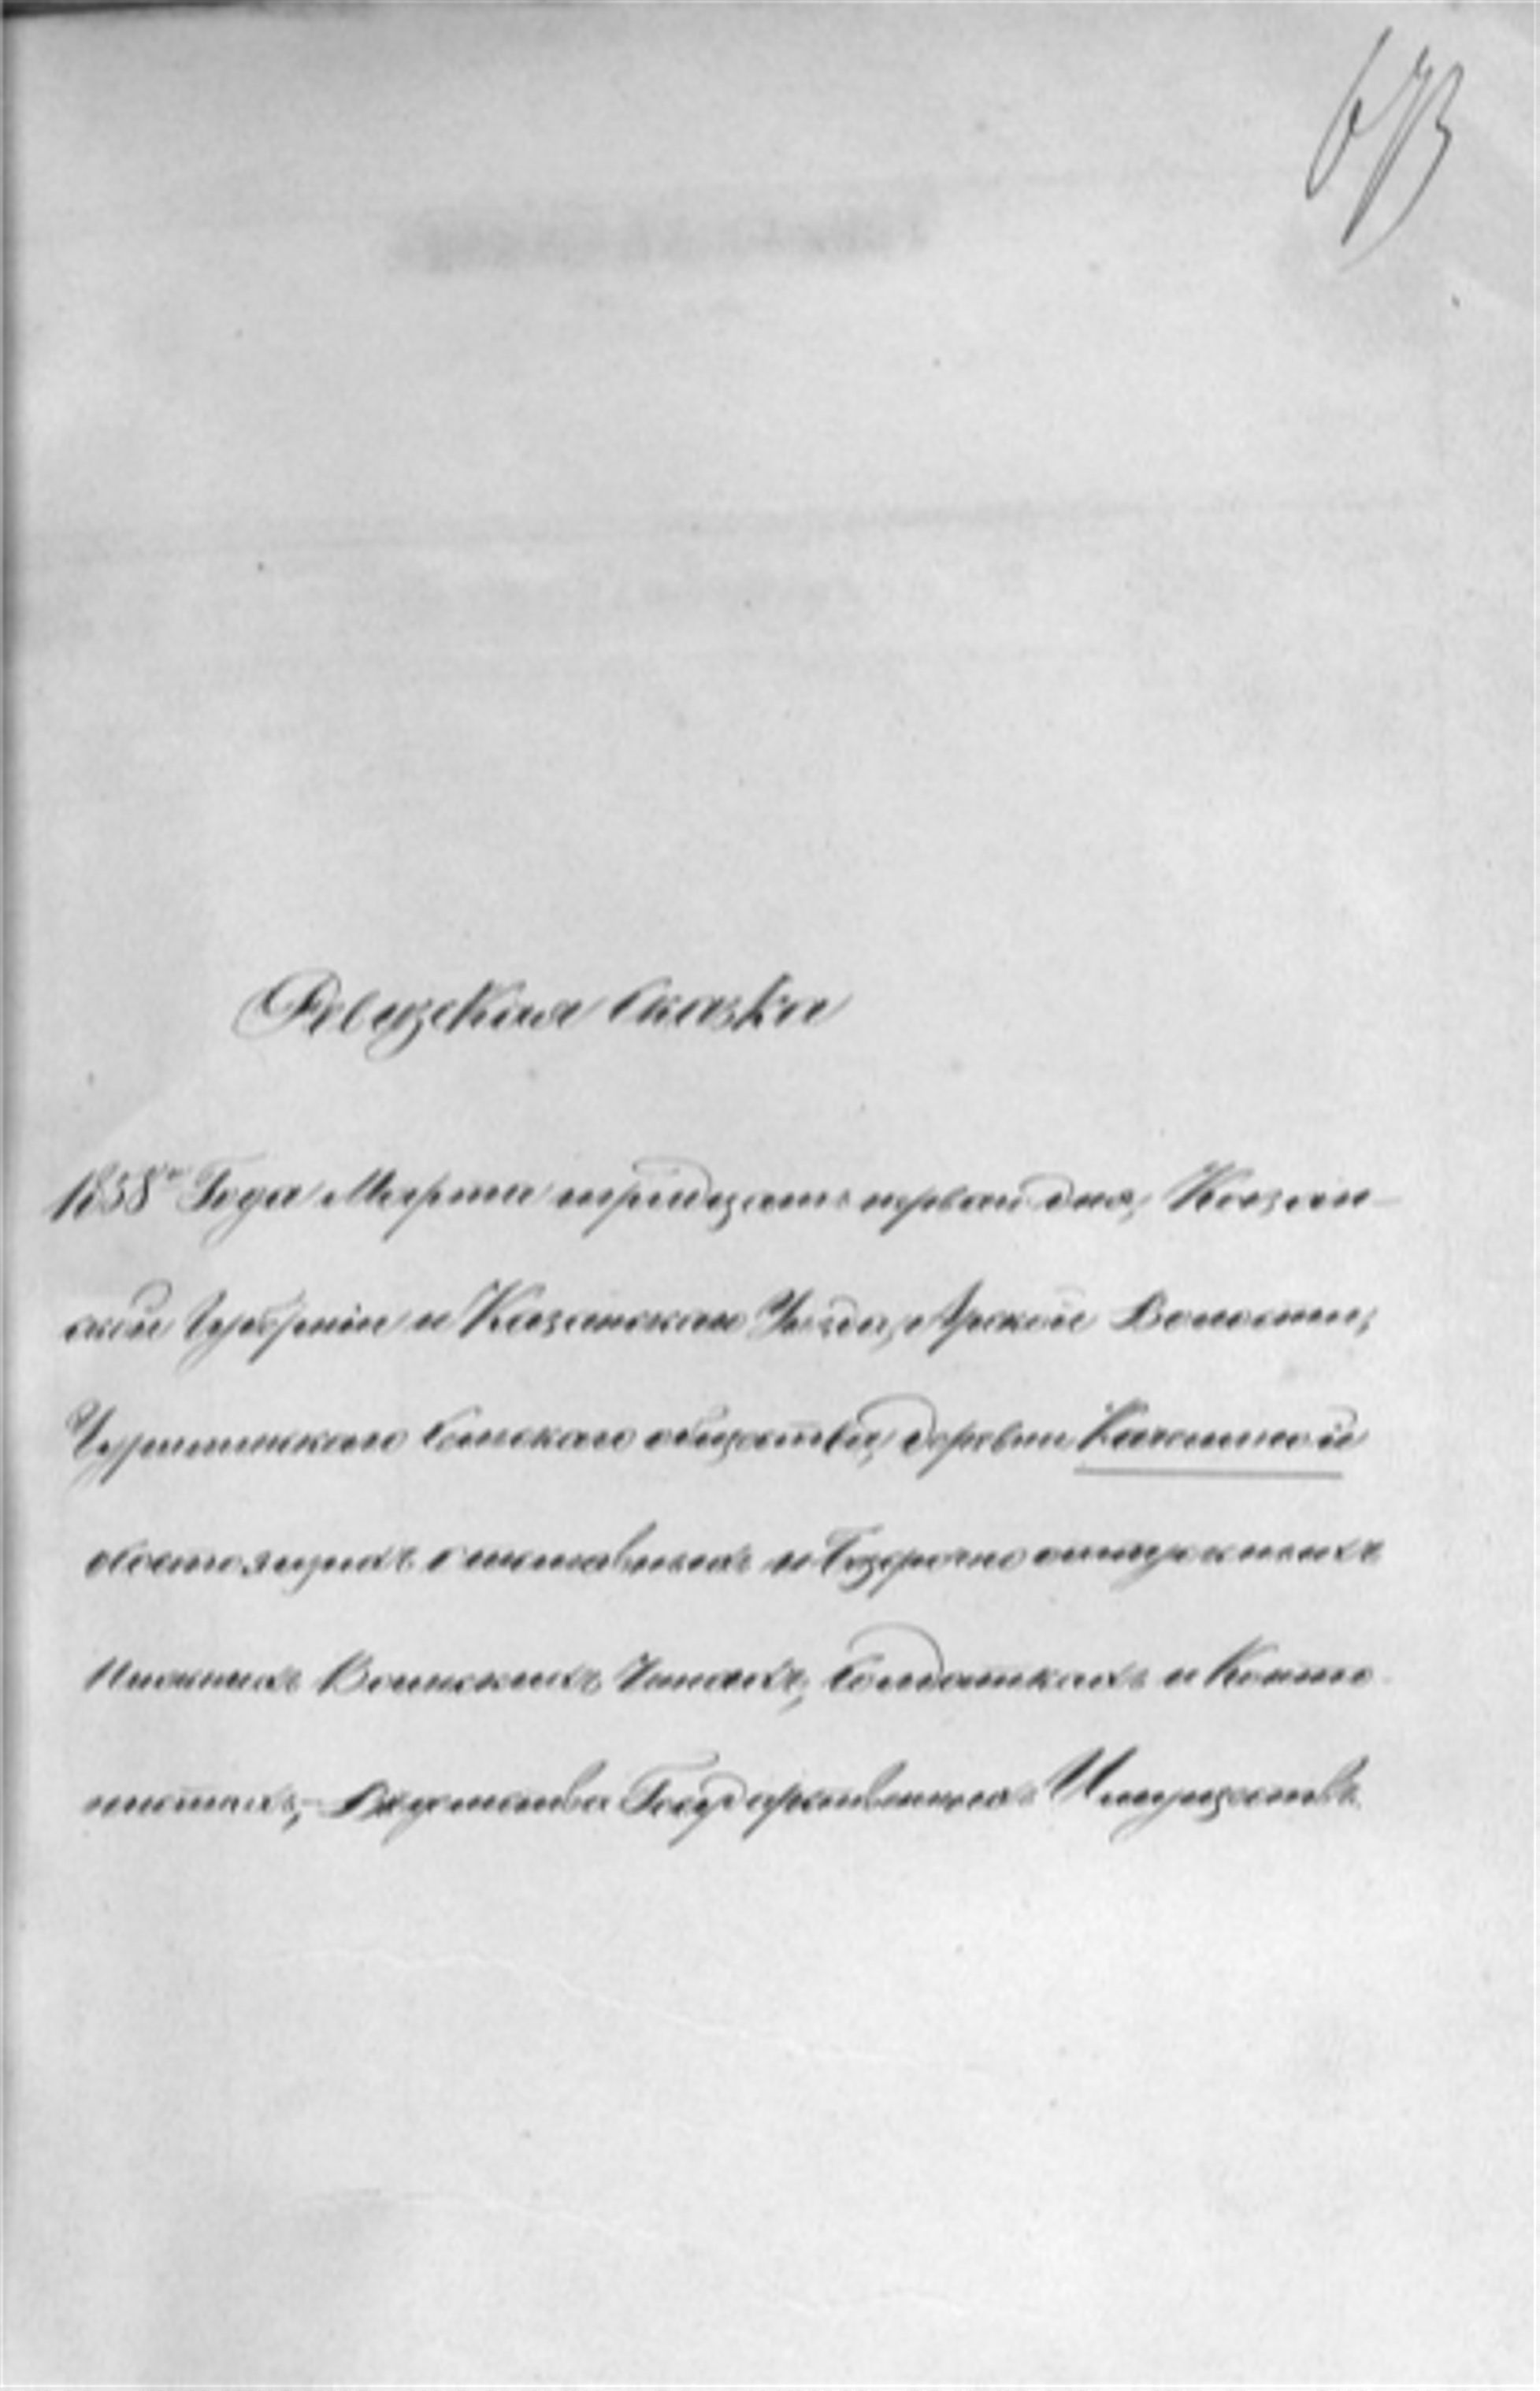 673
Ревизская Сказка
1858го Года Марта тридцать перваго дня, Казан-
ской Губерніи и Казанскаго Уѣзда, Арской Волости,
сельскаго общества, деревни
о состоящихъ отставныхъ и безсрочно отпускныхъ
Нижнихъ Воинскихъ Чинахъ, Солдаткахъ и Канто-
нистахъ, Вѣдомства Государственныхъ Имуществъ